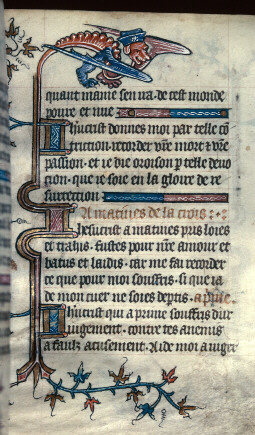 quant marie sen va · de cest monde
poure et nue
Ihucrist donnes moi par telle cō
triction · recorder vr̄e mort & vr̄e
passion · et ie die oroison p telle deuo
cion · que ie soie en la gloire de re
surrection ·
A matines de la crois :
Ihesucrist a matines pris loies
et trahis · fustes pour nr̄e amour et
batus et laidis · car me fai recorder
ce que pour moi souffris · si que ia
de mon cuer ne soies deptis · a pr̄ie
Ihucrist qui a prime souffris dur
iugement · contre tes anemis
a faulz acusement · Aide moi a iuger